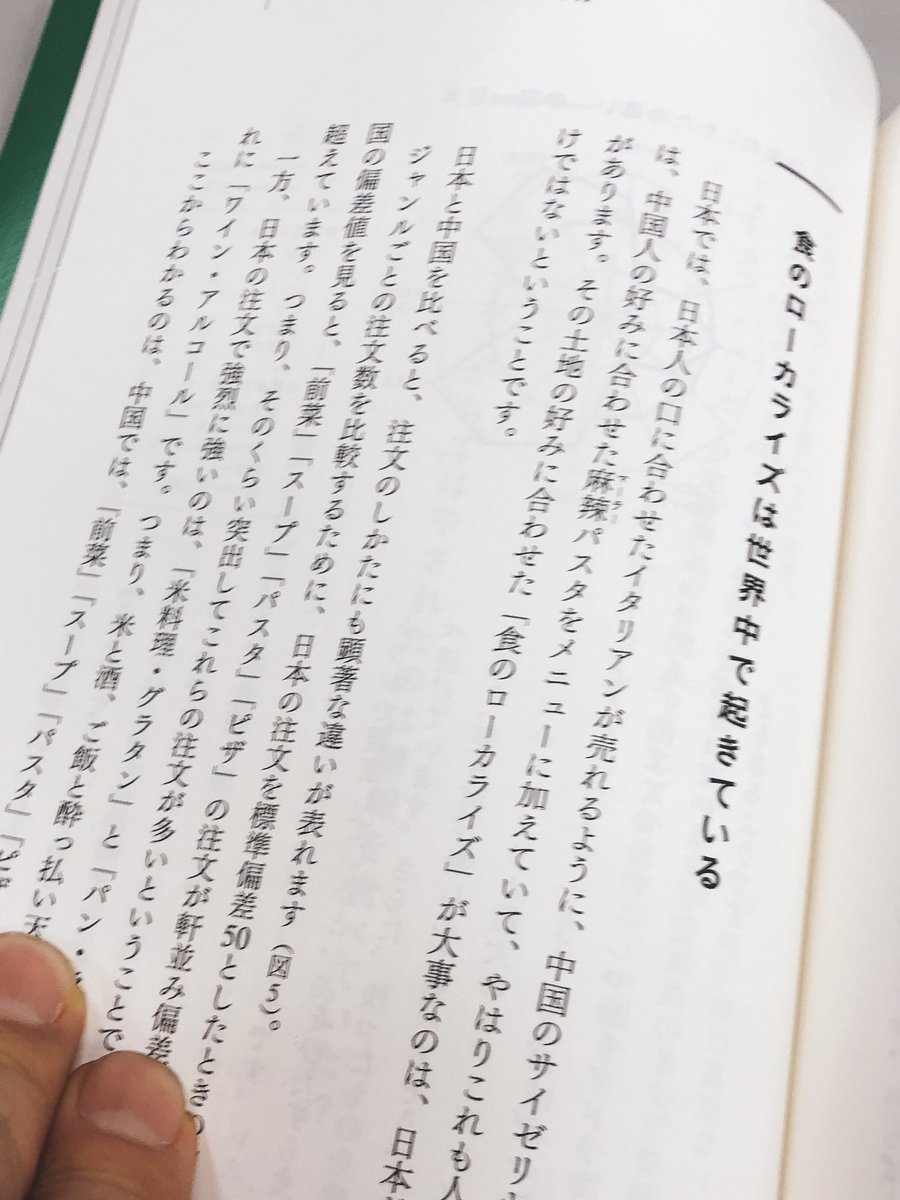 食のローカライズは世界中で起きている
日本では、日本人の口に合わせたイタリアンが売れるように、中国のサイゼリ
は、中国人の好みに合わせた麻辣パスタをメニューに加えていて、やはりこれも人
マーラー
があります。その土地の好みに合わせた「食のローカライズ」が大事なのは、日本
けではないということです。
日本と中国を比べると、注文のしかたにも顕著な違いが表れます(図5)。
ジャンルごとの注文数を比較するために、日本の注文を標準偏差50としたときの
国の偏差値を見ると、「前菜」「スープ」「パスタ」「ピザ」の注文が軒並み偏差
超えています。つまり、そのくらい突出してこれらの注文が多いということで
一方、日本の注文で強烈に強いのは、「米料理・グラタン」と「パン・
れに「ワイン・アルコール」です。つまり、米と酒、ご飯と酔っ払い天
ここからわかるのは、中国では、「前菜」「スープ」「パスタ」「ピ